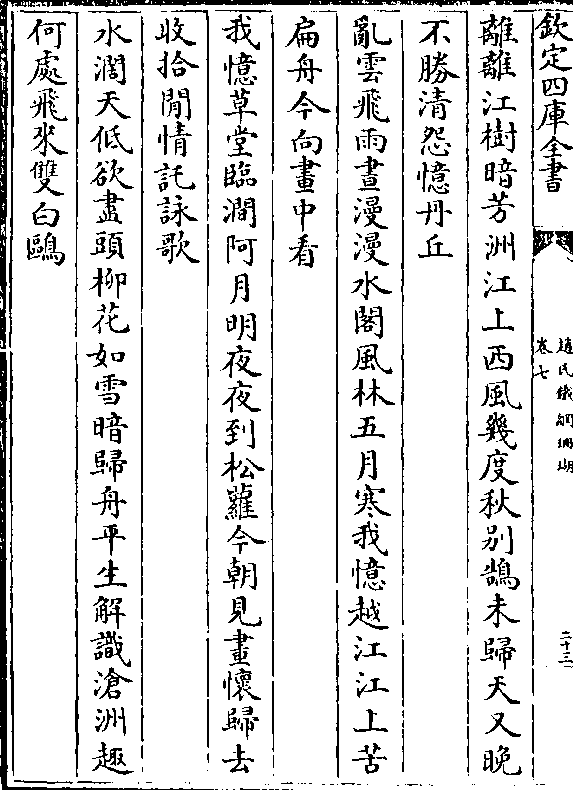 欽定四庫全書
趙氏鐵網珊瑚
卷七
二十三
離離江樹暗芳洲江上西風幾度秋别鵠未歸天又晚
不勝清怨憶丹丘
亂雲飛雨晝漫漫水閣風林五月寒我憶越江江上苦
扁舟今向畫中看
我憶草堂臨澗阿月明夜夜到松蘿今朝見畫懷歸去
收拾閒情託詠歌
水濶天低欲盡頭柳花如雪暗歸舟平生解識滄洲趣
何處飛來雙白鷗